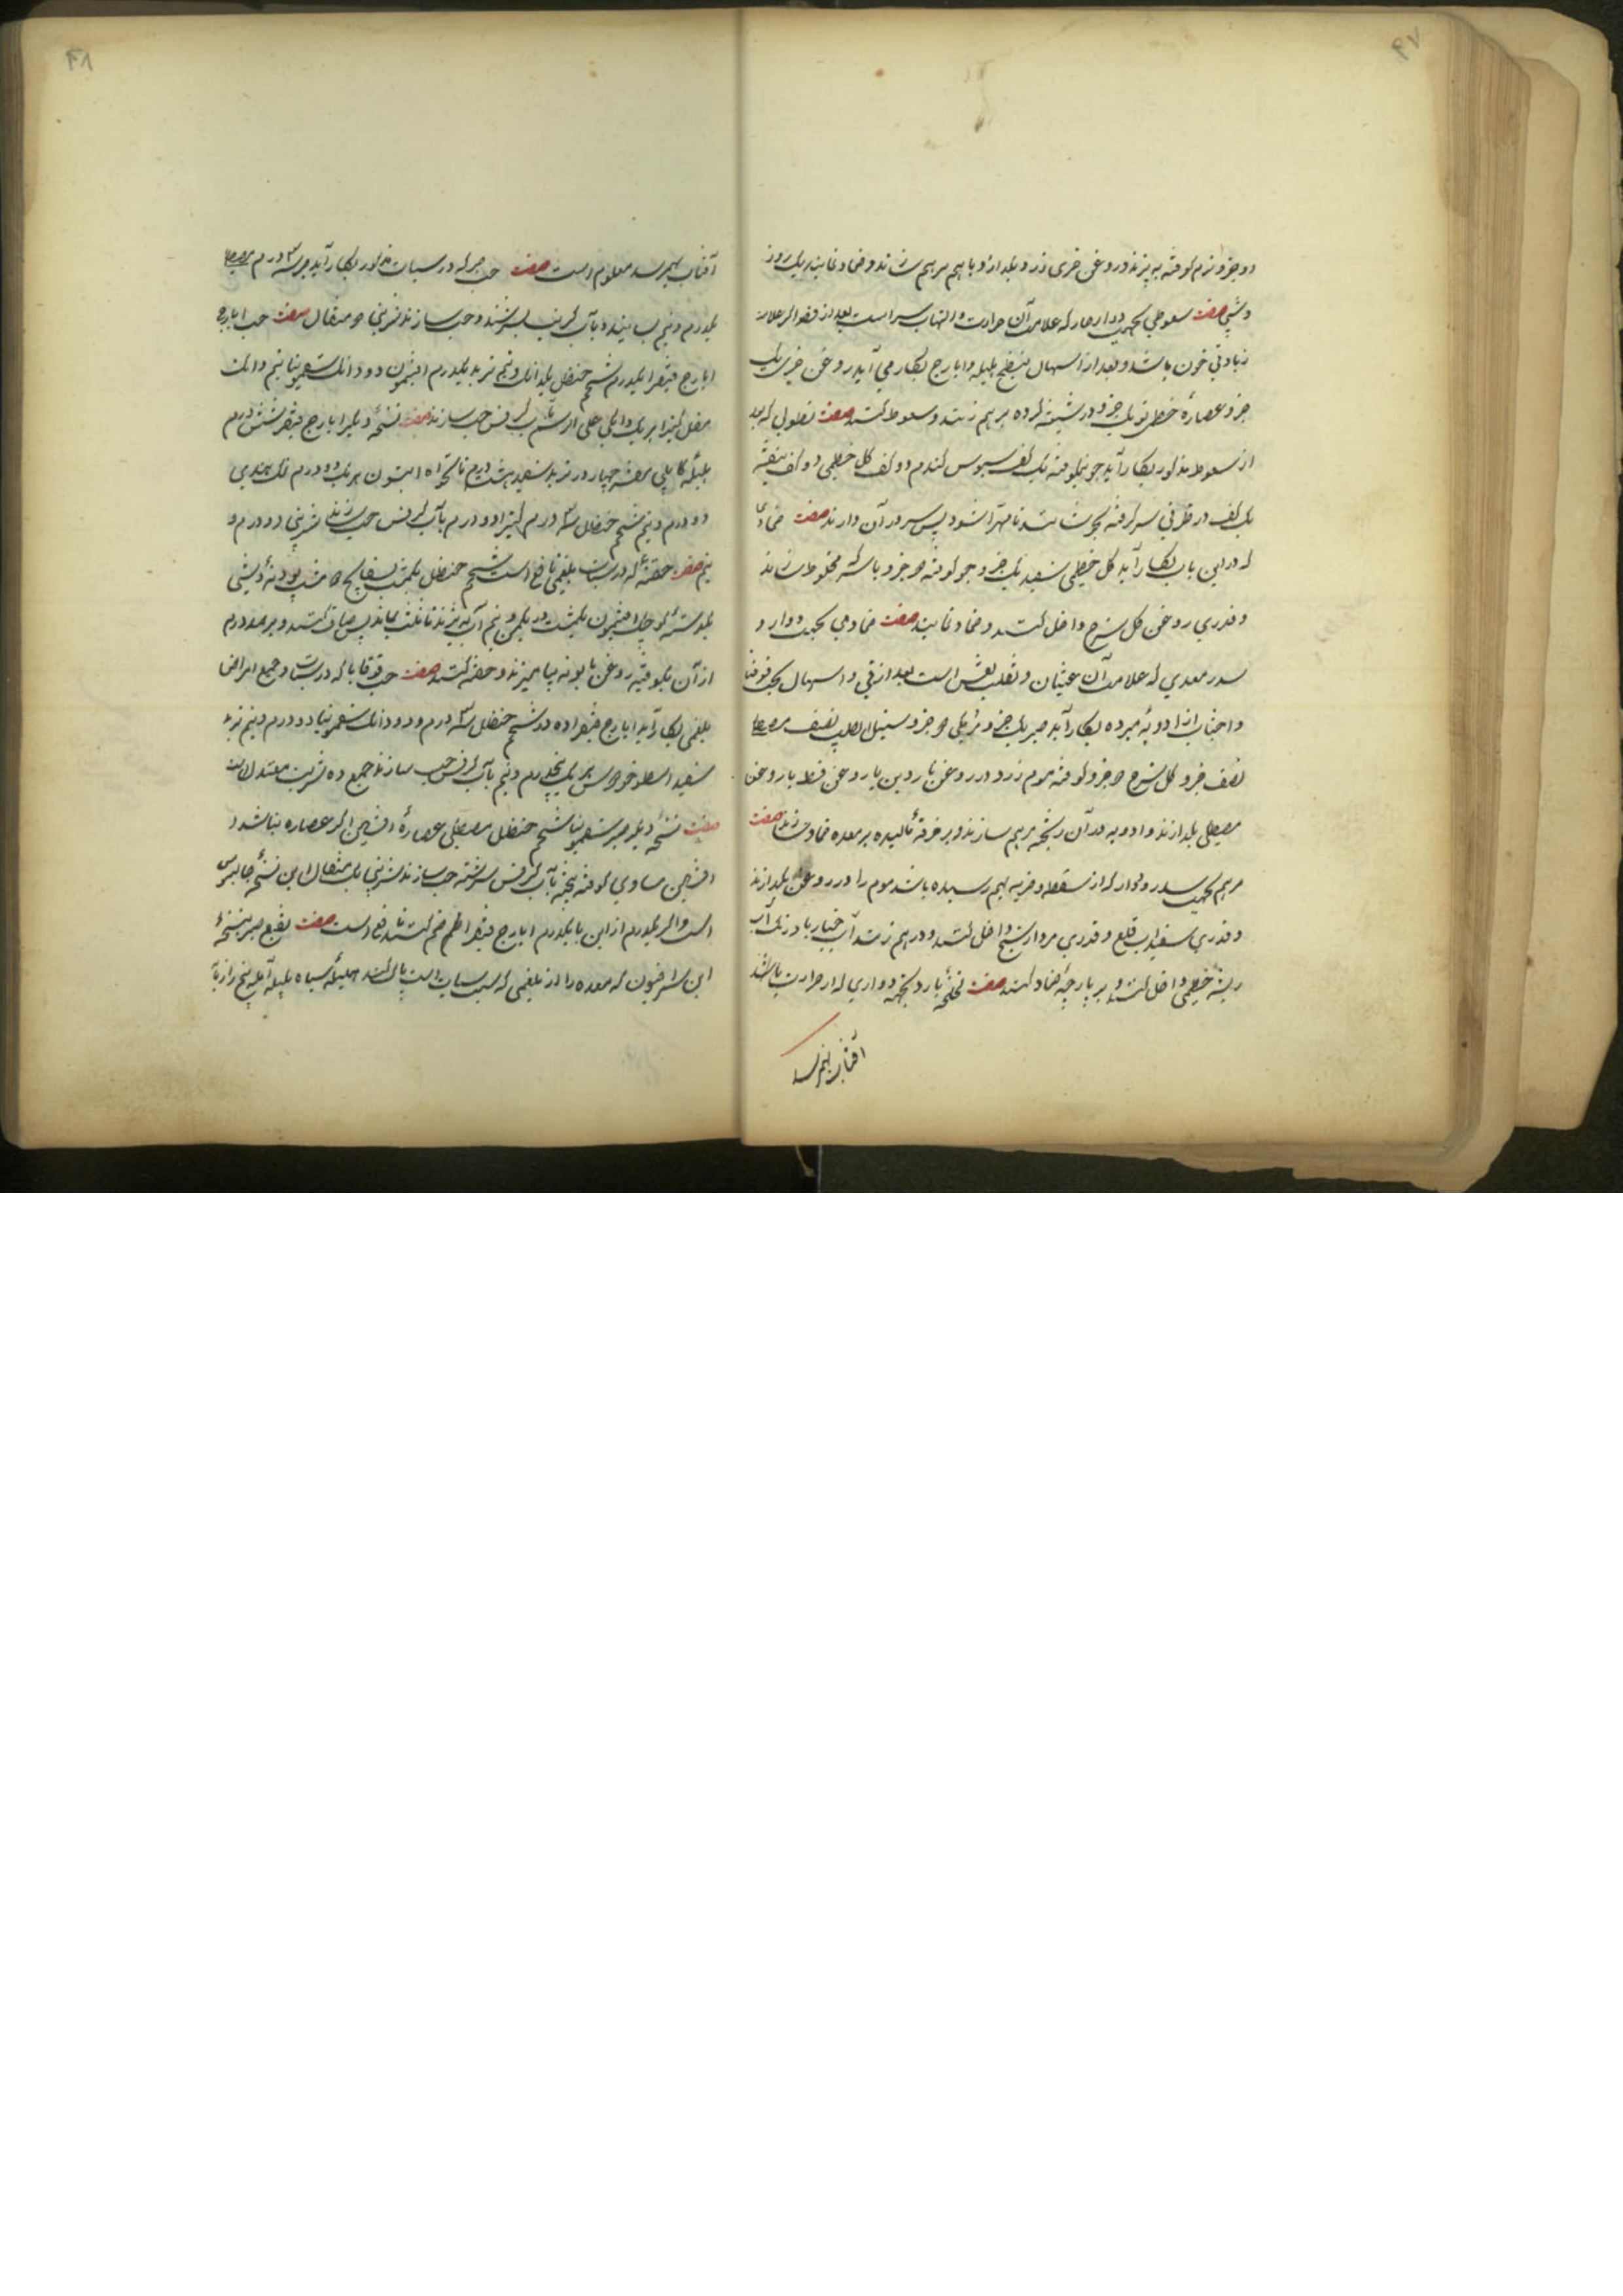 دو جزو نرم کوفته به پزند و روغن خری زرد بگدازد و باهم مرهم سازند و ضماد نمایند یک روز
و شبی صفت سعوطی بجهت دوار حار که علامت آن حرارت و التهاب سر است بعد از فصد اگر علامت
زیادتی خون باشد و بعد از اسهال بمطبوخ هلیله و ایارج بکار می آید روغن خیری یک
جزو عصارهٔ خطمی تر یک جزو در شیشه کرده بر هم زنند و سعوط کنند صفت نطولی که بعد
از سعوط مذکور بکار آید جو نیم کوفته یک کف سبوس گندم دو کف گل خطمی دو کف بنفشه
یک کف در ظرفی سر گرفته بجوشانند تا مهرا شود پس سر در آن دارند صفت ضمادی
که در این باب بکار آید گل خطمی سفید یک جزو جو کوفته جزو با سرکه مخلوط سازند
و قدری روغن گل سرخ داخل کنند و ضماد نمایند صفت ضمادی بجهت دوار و
سدر معدی که علامت آن غثیان و تقلب نفس است بعد از قی و اسهال بحب قوقیا
و اجتناب از ادویهٔ مبرده بکار آید صبر یک جزو جزو سنبل الطیب نصف مصطکی
نصف جزو گل سرخ جزو کوفته موم زرد در روغن ناردین یا روغن قسط یا روغن
مصطکی بگدازند و ادویه در آن ریخته مرهم سازند و بر خرقه مالیده بر معده ضماد سازند صفت
مرهم بجهت سدر و دوار که از سقطه و ضربه بهم رسیده باشد موم را در روغن بگدازند
و قدری سفیداب قلع و قدری مردارسنج داخل کنند و در هم زنند آب خیار بادرنگ آب
ریشه خطمی داخل کنند و بر پارچه ضماد کنند صفت لخلخهٔ بارد بجهة دواری که از حرارت باشد
آفتاب بهم رسد
آفتاب بهم رسد معلوم است صفت حب صبر که در سبات مذکور بکار آید صبر سه درم مصطکی
یکدرم و نیم بسایند و بآب کرنب بسرشند و حب سازند شربتی مثقال صفت حب ایارج
ایارج فیقرا یکدرم شحم حنظل یکدانک و نیم تربد یکدرم افتیمون دو دانک سقمونیا نیم دانک
مقل کتیرا بریک دانکی علی الرسم بآب کرفس حب سازند صفت نسخهٔ دیگر ایارج فیقرا شش درم
هلیلهٔ کابلی چهار درم تربد سفید هشت درم نانخواه انیسون هر یک دو درم نمک هندی
دو درم و نیم شحم حنظل سه درم کتیرا دو درم بآب کرفس حب سازند شربتی دو درم و
نیم صفت حقنهٔ که در سبات بلغمی نافع است شحم حنظل یکمشت بسفایج مشت پودنهٔ دشتی
یکدسته افتیمون یکمشت در یکمن و نیم آب بپزند تا ثلث بماند پس صاف کنند و بر صد درم
از آن یکوقیه روغن بابونه بیامیزند و حقنه کنند صفت حب قوقایا که در سبات و جمیع امراض
بلغمی بکار آید ایارج فیقرا ده درم شحم حنظل سه درم و دو دانک سقمونیا دو درم و نیم تربد
سفید اسطوخودوس هر یک پنجدرم و نیم بآب کرفس حب سازند جمیع ده شربت معتدل است
صفت نسخهٔ دیگر صبر سقمونیا شحم حنظل مصطکی عصارهٔ افسنتین اگر عصاره نباشد
افسنتین مساوی کوفته بیخته بآب کرفس سرشته حب سازند شربتی یک مثقال این نسخهٔ جالینوس
است و اگر یکدرم از این با یکدرم ایارج فیقرا ضم کنند نافع است صفت نقیع صبر نسخهٔ
ابن سرافیون که معده را از بلغمی که سبب سبات است پاک کند هلیلهٔ سیاه بلیله آمله بیخ رازیانه